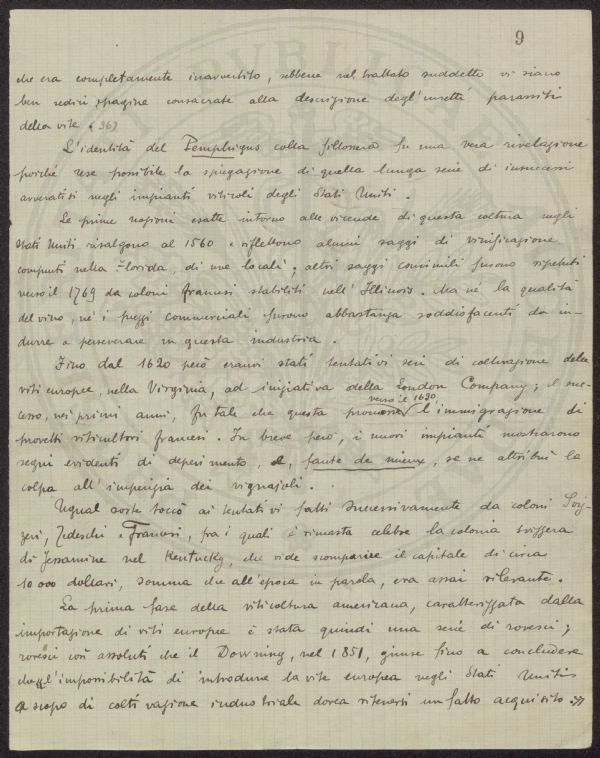 9
che era completamente inavvertito, sebbene nel trattato suddetto vi siano
ben sedici pagine consacrate alla descrizione degl'insetti parassiti
della vite (36)
L'identità del Pemphigus colla fillossera fu una vera rivelazione
poichè rese possibile la spiegazione di quella lunga serie di insuccessi
avveratisi negli impianti viticoli degli Stati Uniti.
Le prime nozioni esatte intorno alle vicende di questa coltura negli
Stati Uniti risalgono al 1560 e riflettono alcuni saggi di vinificazione
compiuti nella Florida, di uve locali; altri saggi consimili furono ripetuti
verso il 1769 da coloni francesi stabiliti nell'Illinois. Ma nè la qualità
del vino, nè i prezzi commerciali furono abbastanza soddisfacenti da in-
durre a perseverare in questa industria.
Fino dal 1620 però eranvi stati tentativi seri di coltivazione delle
viti europee, nella Virginia, ad iniziativa della London Company; il suc-
verso il 1630
cesso, nei primi anni, fu tale che questa promosse l'immigrazione di
provetti viticultori francesi. In breve però, i nuovi impianti mostrarono
segni evidenti di deperimento, e, faute de mieux, se ne attribuì la
colpa all'imperizia dei vignajoli.
Ugual sorte toccò ai tentativi fatti successivamente da coloni Sviz-
zeri, Tedeschi e Francesi, fra i quali è rimasta celebre la colonia svizzera
di Jessamine nel Kentucky, che vide scomparire il capitale di circa
10 000 dollari, somma che all'epoca in parola, era assai rilevante.
La prima fase della viticoltura americana, caratterizzata dalla
importazione di viti europee è stata quindi una serie di rovesci;
rovesci così assoluti che il Downing, nel 1851, giunse fino a concludere
che l'impossibilità di introdurre la vite europea negli Stati Uniti
a scopo di coltivazione industriale dovea ritenersi un fatto acquisito.